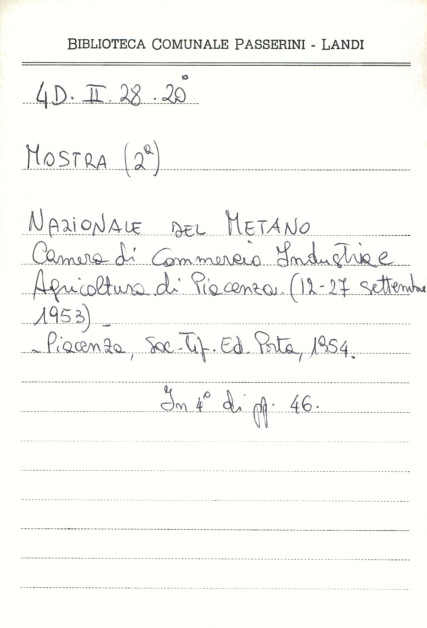 BIBLIOTECA COMUNALE PASSERINI - LANDI
4D. II. 28. 20°
MOSTRA (2ª)
NAZIONALE DEL METANO
Camera di Commercio Industria e
Agricoltura di Piacenza (12-27 settembre
1953) -
- Piacenza, Soc. Tip. Ed. Porta, 1954.
In 4° di pp. 46.